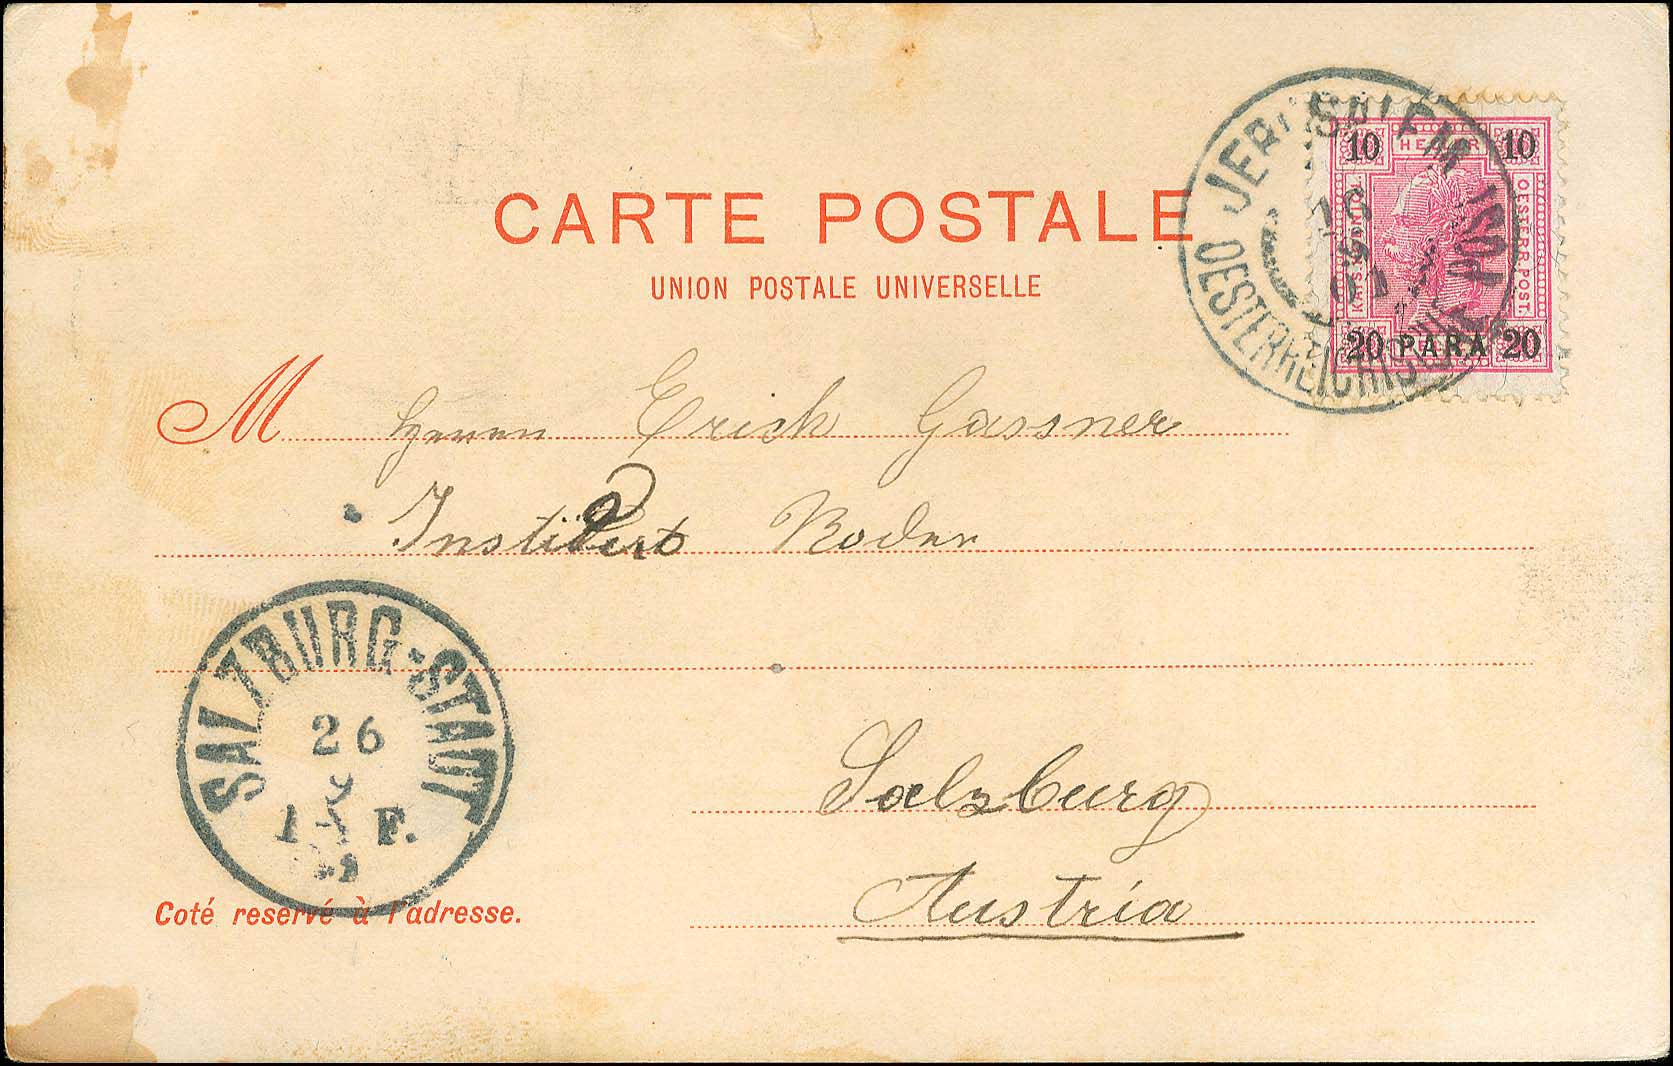 CARTE POSTALE
UNION POSTALE UNIVERSELLE
JERUSALEM
OESTERREICHISCHE POST
10 HELLER 10
KAIS.KÖNIGL.
OESTERR.POST.
20 PARA 20
M Herrn Erich Gassner
Institut Roden
SALZBURG-STADT
26
1 F.
Salzburg
Austria
Coté reservé à l'adresse.